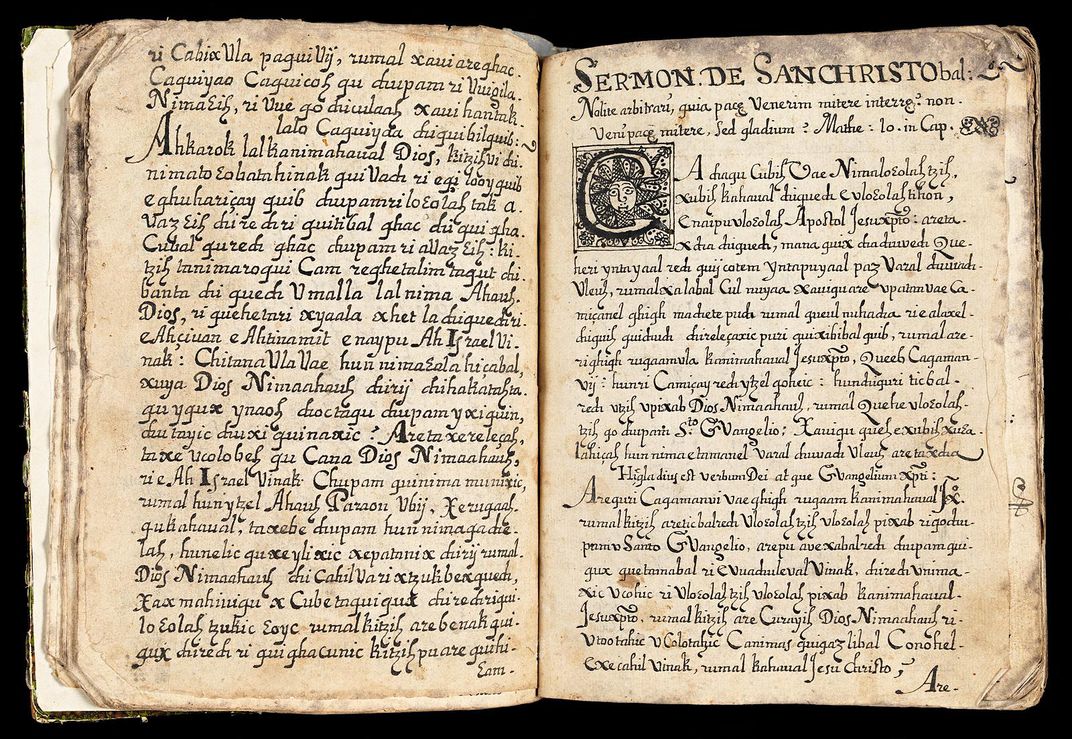 ri CabixVla paquiVij, rumal xaui areghac.
Caquiyao Caquicoh qu chupam ri Vuqila.
NimaEih, ri Vue go chiculaah xaui hantak.
lalo Caquiyda chiquibilquib:
Ahkarok lal kanimahaual Dios, kitzih vi chi
nimato Eobatahinak qui Vach ri eqi looy quib
eqhuhariçay quib chupam ri loEolah tak a.
VazEih chirechiri quitibal ghac chi qui gha.
Cubal qurech ghac chupam ri aVazEih: ki.
tzih tanimaroqui Cam reghetalim taqut chi.
banta chi quech Vmalla lal nima Ahauh.
Dios, ri quehetari xyaala xhet la chiquechri.
e Ahçiuan e Ahtinamit e naypu Ah Israel Vi.
nak: Chitana Vla Vae hun nimaEala hiçabal,
xuya Dios Nimaahauh chirij chihakatahta.
qu yqux ynaoh choctaqu chupam yxiquin,
chutayic chuxiquinaxic? Areta xereleçah,
taxe Vcolobeh qu Cana Dios Nimaahauh,
ri e Ah Israel Vinak Chupam quinima munixic,
rumal hun ytzel Ahauh Paraon Vbij, Xeruqaah.
qukahaual, taxebe chupam hun nimaqache.
lah, hunelic quxeylixic xepatanix chirij rumal.
Dios Nimaahauh chi Cahil Vari xtzukbexquech,
Xax mahiuiqu x Cubetaquiqux chirechriqui.
loEolah tzukic Eoyc rumal kitzih are benak qui.
qux chirechri qui qhacunic kitzih pu are quihi.
Eam.
SERMON. DE SANCHRISTObal:
Nolite arbitrari, quia pacẽ Venerim mitere interrã: non.
Veni pacẽ mitere, sed gladium: Mathe: 10. in Cap.
CA chaqu Cubih Vae NimaloEolah tzih,
xubih kahaual chiquech e VloEolah tihon,
Enaipu vloEolah Apostol Jesuxp̃to: areta.
xcha chiquech, mana quix cha chiuech Que.
heri ynta yaal rech quijcotem yntapu yaal paz Varal chuuach.
Vleuh, rumal xalabal Cul nuyaa xauiquare Vpatan vae Ca.
miçanel ghigh machete puch rumal queul nuhacha ri e alaxel.
chiquih quichuch chireleçaxic puri quixibilal quib, rumal are.
ri ghigh ruqaam vla kanimahaual Jesuxp̃to, Queeb Caqaman.
Vij: hunri Camiçay rech ytzel qoheic: hunchiquri ticbal.
rech Vtzih vpixab Dios Nimaahauh, rumal Quehe vloEolah.
tzih go chupam S.to EVangelio: Xauiqu queh e xubih xuEa.
lahiçah hun nima etamanel Varal chuuach Vleuh, areta xcha
Hic gladius est verbum Dei atque EVangelium xp̃ti:
Arequri Caqamanvi vae ghigh ruqaam kanimahaual Jsx̃.
rumal kitzih aretic balrech VloEolah tzih VloEolah pixab riqochu.
pam v Santo EVangelio, arepu avexabalrech chupam qui.
qux quetamabal ri eVuachuleval Vinak, chirech vnima.
xic Vcohic ri VloEolah tzih vloEolah pixab kanimahaual.
Jesuxp̃to, rumal kitzih are Curayih Dios Nimaahauh ri.
Vtootahic VColotahic Canimas quiqazlibal Conohel.
execahil vinak, rumal kahaual Jesu Christo,
Are.